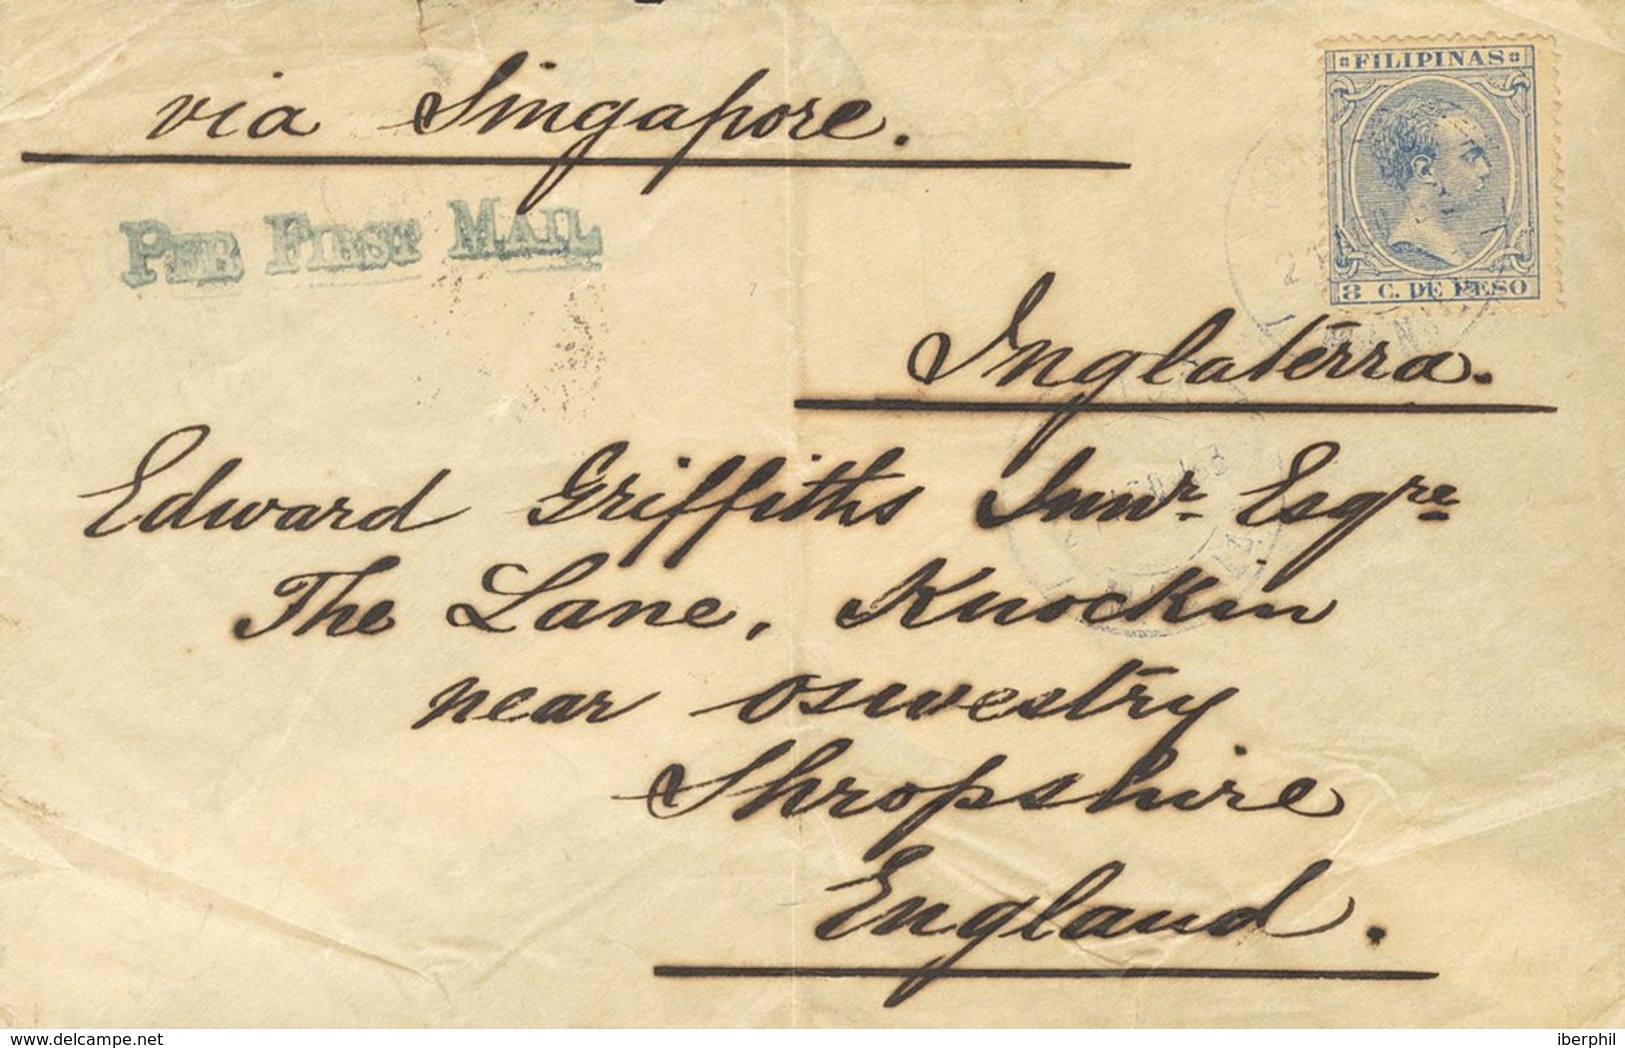 via Singapore.
FILIPINAS
8 C. DE PESO
PER FIRST MAIL
Inglaterra.
Edward Griffiths Junr. Esqre
The Lane, Knockin
near Oswestry
Shropshire
England.
delcampe.net
iberphil